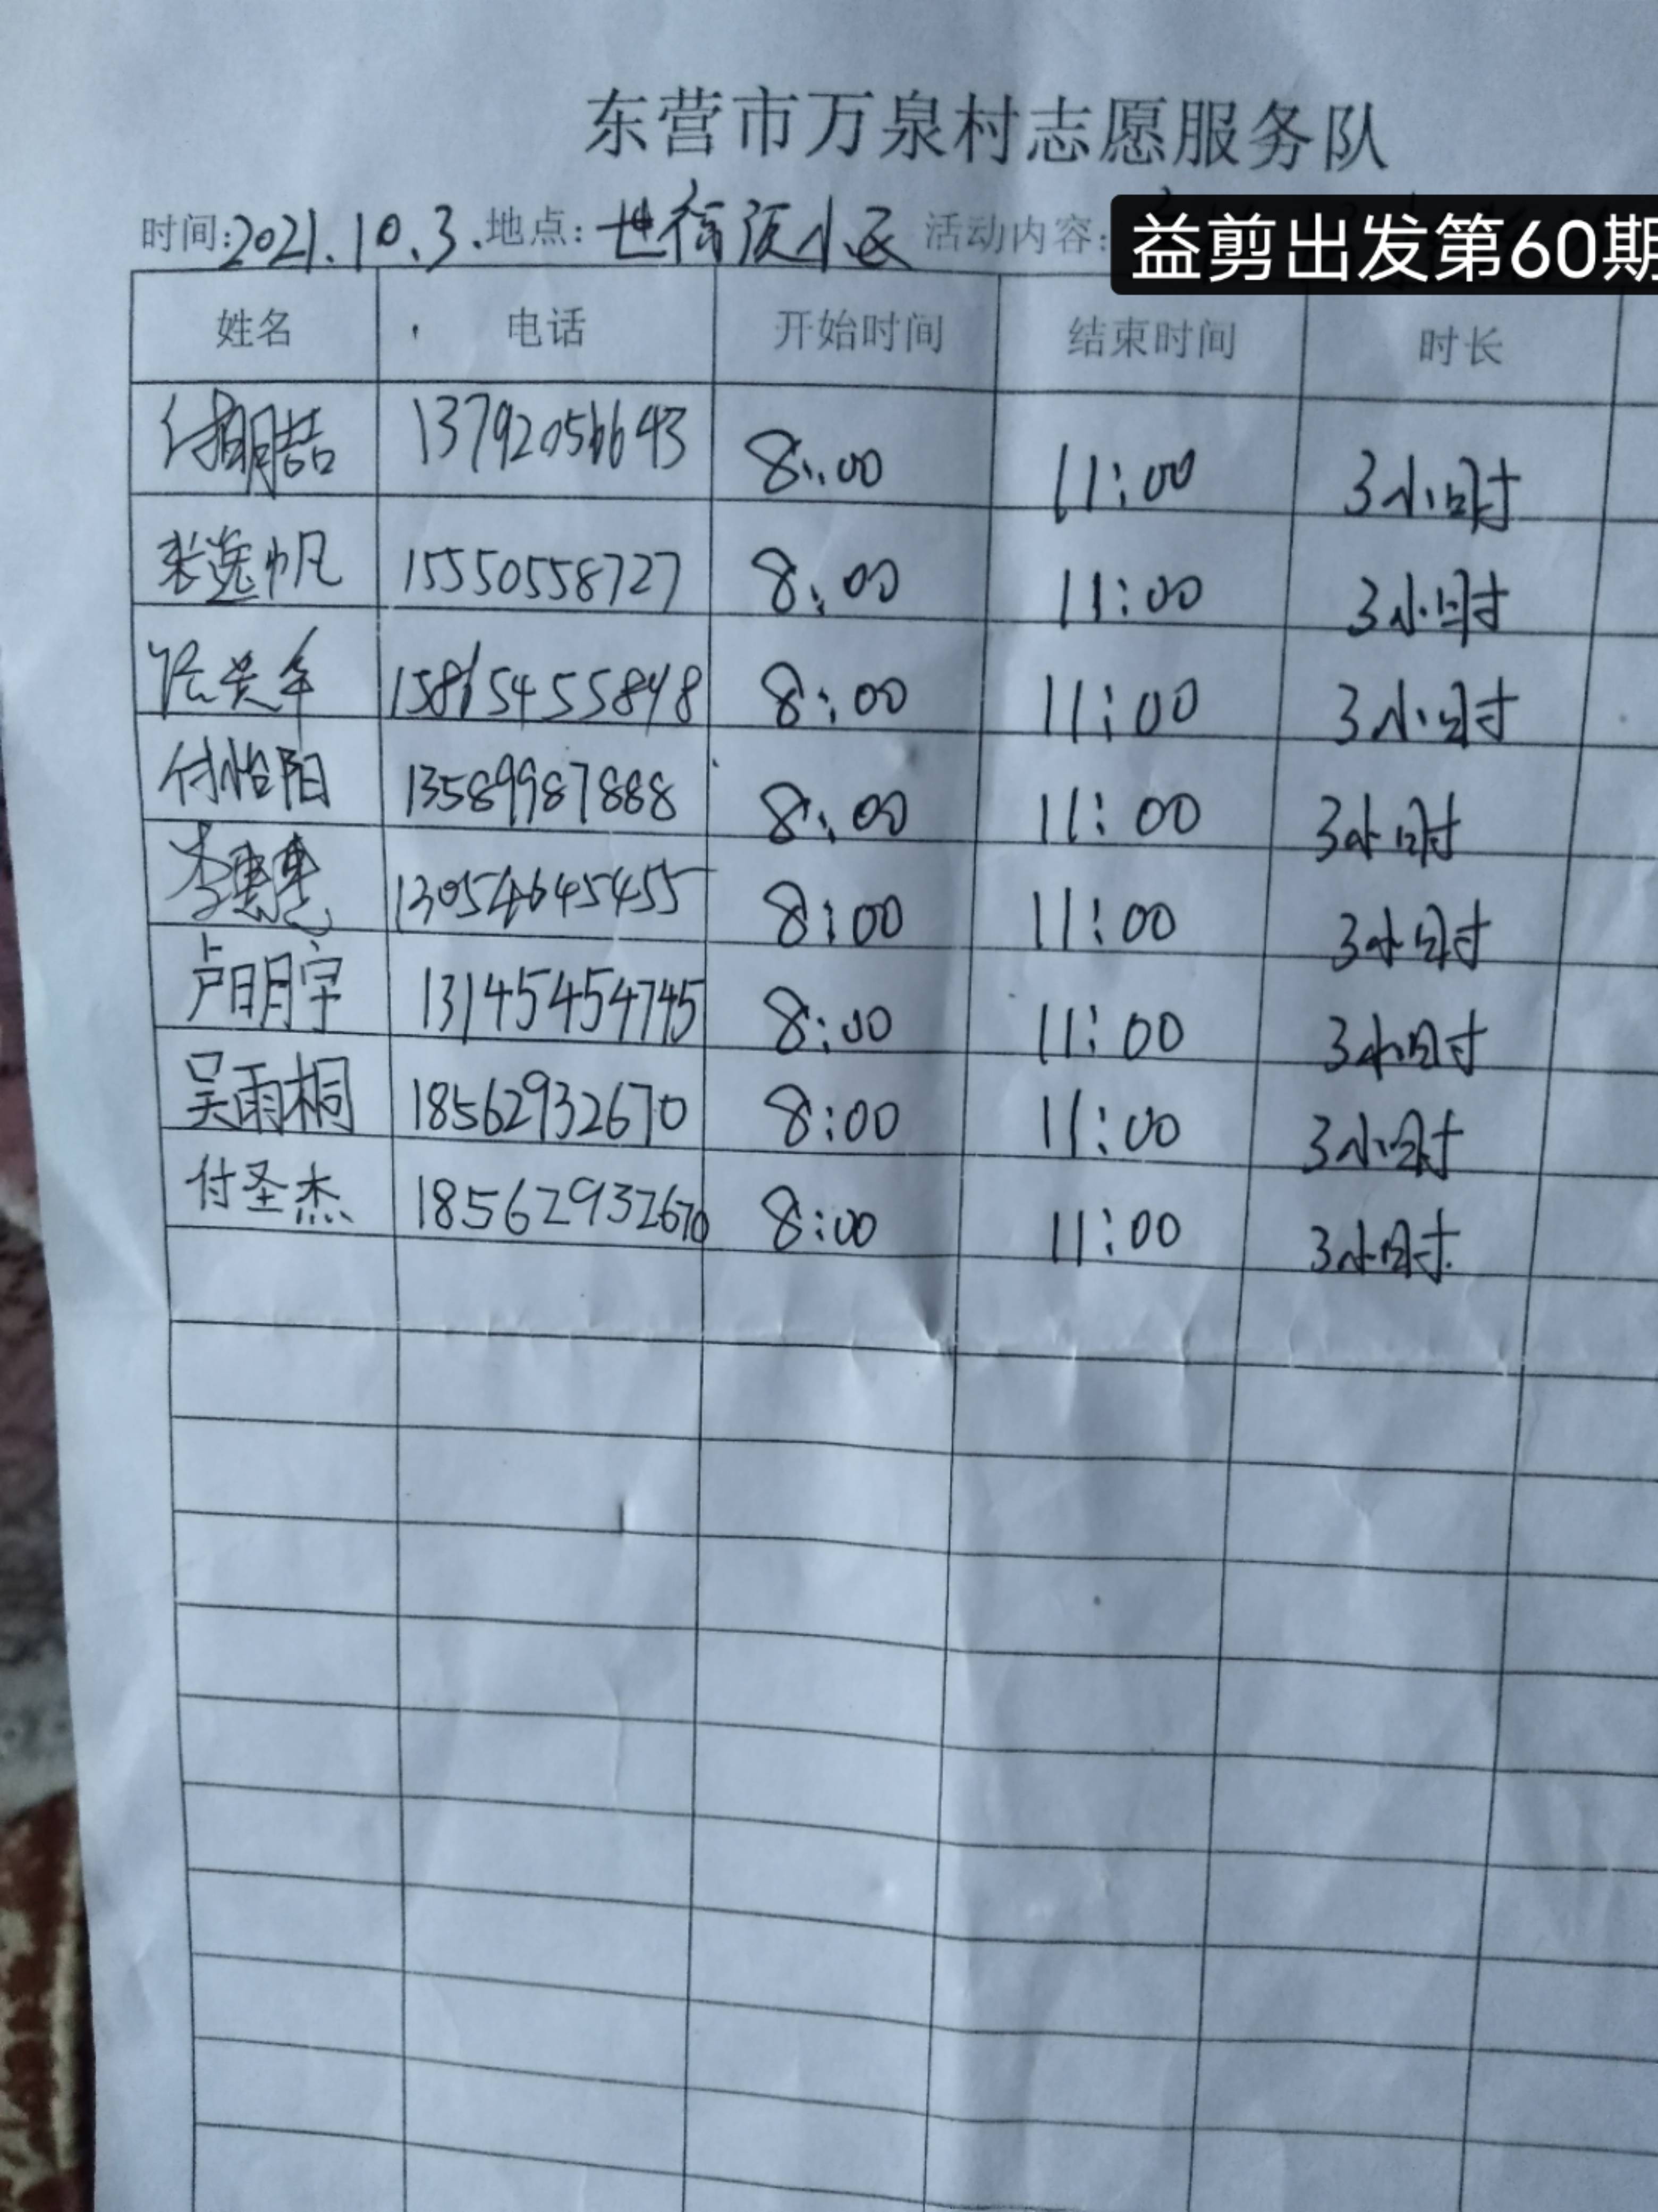 东营市万泉村志愿服务队
时间:2021.10.3.地点: 小区 活动内容: 益剪出发第60期
姓名 电话 开始时间 结束时间 时长
13792056643 8:00 11:00 3小时
张逸帆 15550558727 8:00 11:00 3小时
8:00 11:00 3小时
付怡阳 13589987888 8:00 11:00 3小时
李惠惠 8:00 11:00 3小时
卢明宇 13145454745 8:00 11:00 3小时
吴雨桐 18562932670 8:00 11:00 3小时
付圣杰 18562932670 8:00 11:00 3小时